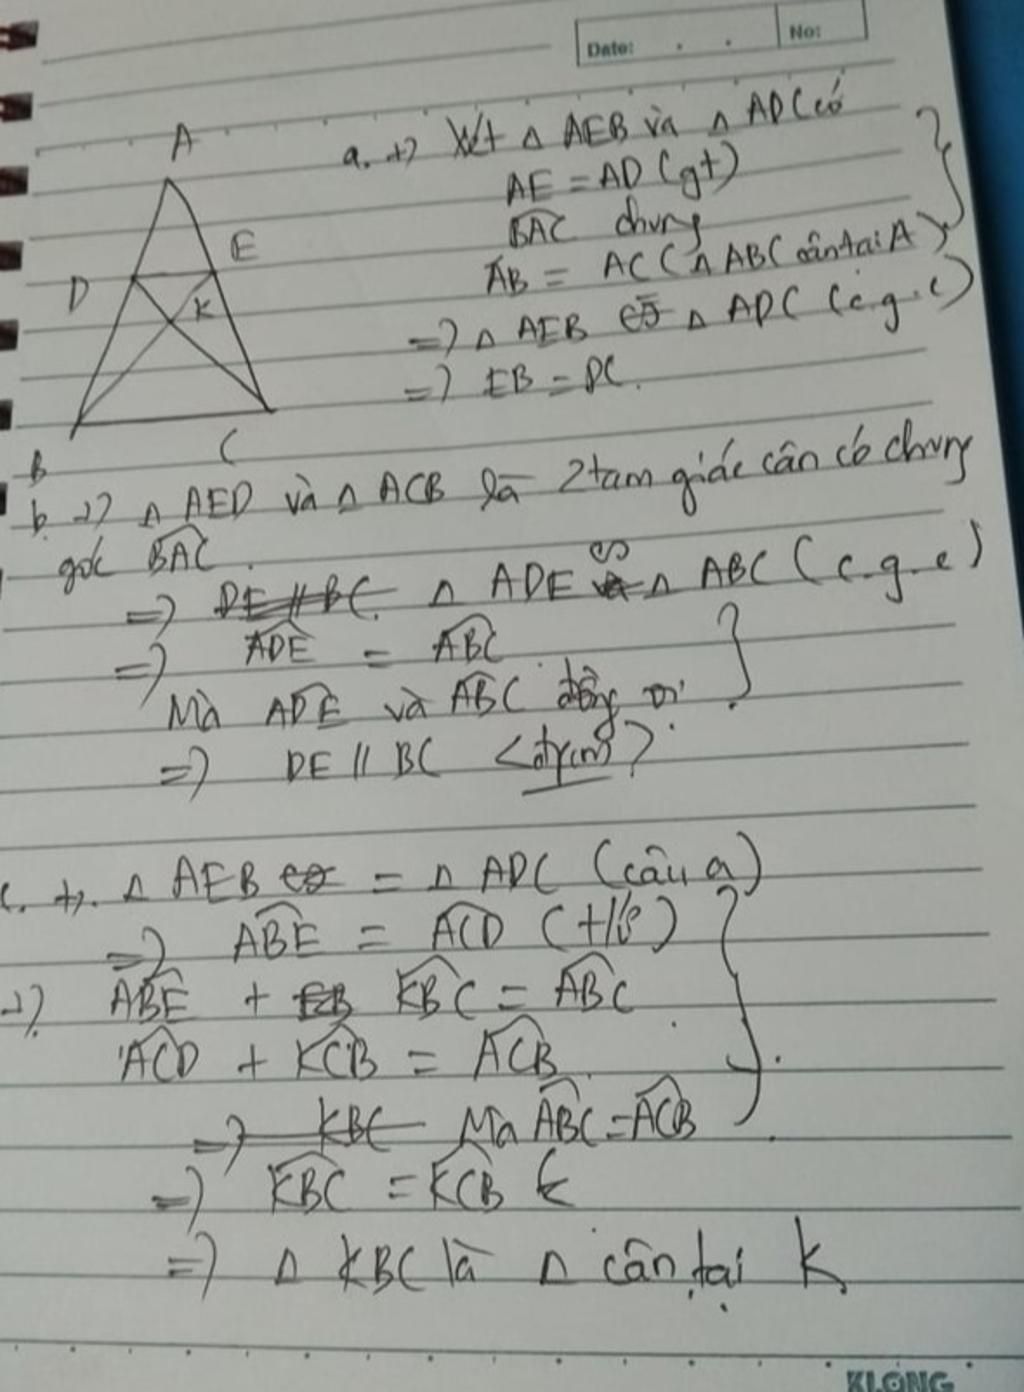 Date: . . No:
A
E
D
K
B
C
a. +) Xét Δ AEB và Δ ADC có
AE = AD (gt)
BAC chung
AB = AC (Δ ABC cân tại A)
=) Δ AEB = Δ ADC (c.g.c)
=) EB = DC.
b. +) Δ AED và Δ ACB là 2 tam giác cân có chung
góc BAC.
=) DE // BC. Δ ADE ∽ Δ ABC (c.g.c)
=) ADE = ABC
Mà ADE và ABC đồng vị
=) DE // BC <đpcm>
c. +). Δ AEB = Δ ADC (câu a)
=) ABE = ACD (+)
+) ABE + KBC = ABC
ACD + KCB = ACB.
=) KBC Mà ABC = ACB
=) KBC = KCB K
=) Δ KBC là Δ cân tại K
KLONG